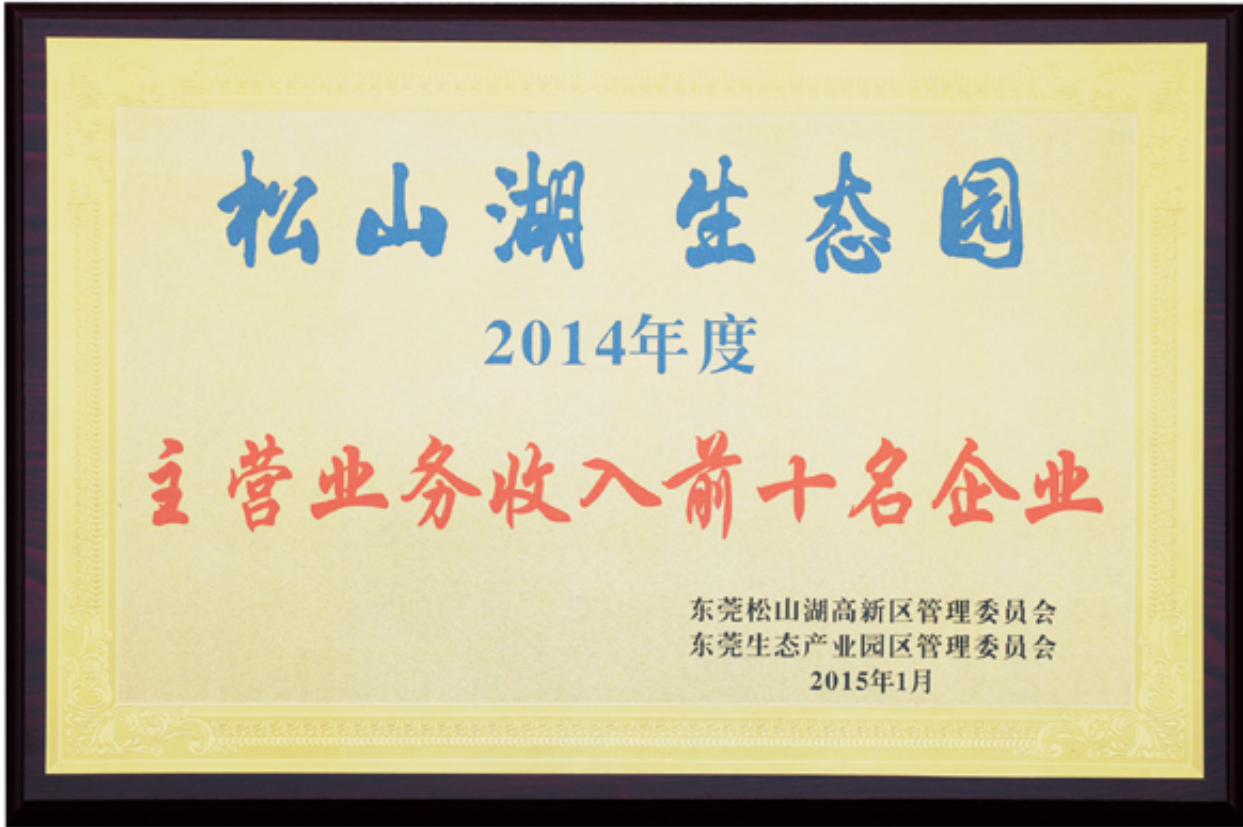 松山湖 生态园
2014年度
主营业务收入前十名企业
东莞松山湖高新区管理委员会
东莞生态产业园区管理委员会
2015年1月